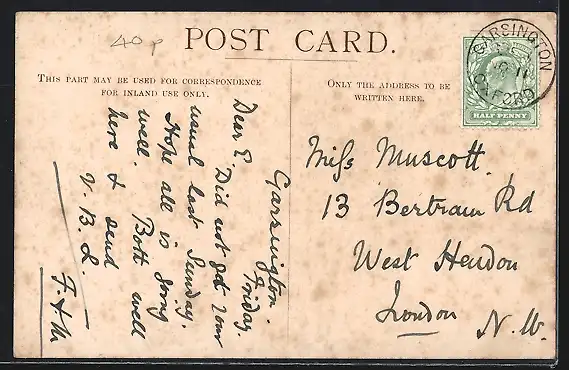 40p
POST CARD.
THIS PART MAY BE USED FOR CORRESPONDENCE
FOR INLAND USE ONLY.
ONLY THE ADDRESS TO BE
WRITTEN HERE.
GARSINGTON
OXFORD
HALF PENNY
Garsington
Friday.
Dear E. Did not get your
usual last Sunday.
Hope all is going
well. Both well
here & send
V. B. L.
F. & M
Miss Muscott.
13 Bertram Rd
West Hendon
London
N. W.